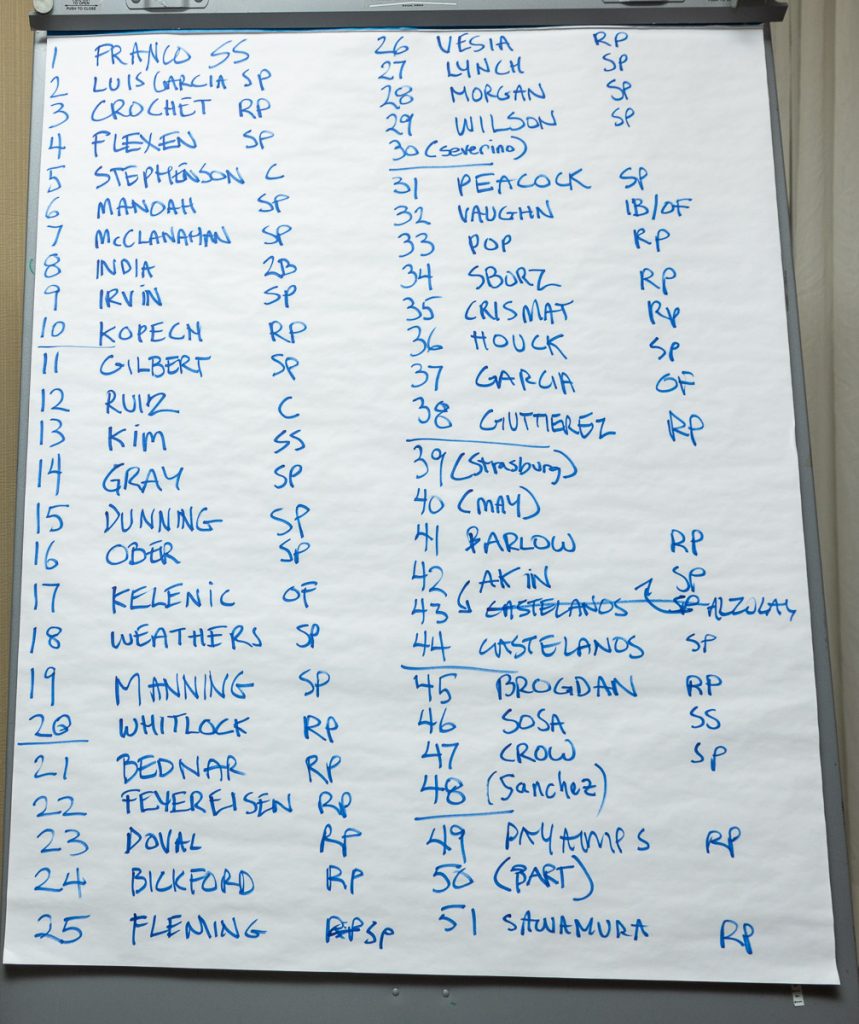 1 FRANCO SS
2 LUIS GARCIA SP
3 CROCHET RP
4 FLEXEN SP
5 STEPHENSON C
6 MANOAH SP
7 McCLANAHAN SP
8 INDIA 2B
9 IRVIN SP
10 KOPECH RP
11 GILBERT SP
12 RUIZ C
13 KIM SS
14 GRAY SP
15 DUNNING SP
16 OBER SP
17 KELENIC OF
18 WEATHERS SP
19 MANNING SP
20 WHITLOCK RP
21 BEDNAR RP
22 FEYEREISEN RP
23 DOVAL RP
24 BICKFORD RP
25 FLEMING RP SP
26 VESIA RP
27 LYNCH SP
28 MORGAN SP
29 WILSON SP
30 (severino)
31 PEACOCK SP
32 VAUGHN 1B/OF
33 POP RP
34 SBORZ RP
35 CRISMAT RP
36 HOUCK SP
37 GARCIA OF
38 GUTTIEREZ RP
39 (Strasburg)
40 (MAY)
41 BARLOW RP
42 AKIN SP
43 CASTELANOS SP ALZOLAY
44 CASTELANOS SP
45 BROGDAN RP
46 SOSA SS
47 CROW SP
48 (Sanchez)
49 PAYAMPS RP
50 (BART)
51 SAWAMURA RP